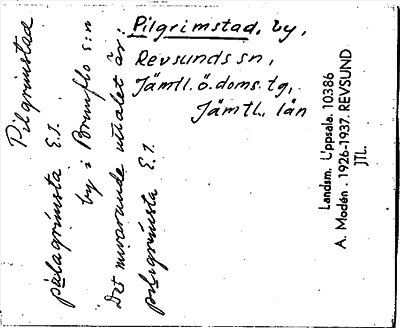 Pilgrimstad, by,
Revsunds sn,
Jämtl. ö. doms. tg,
Jämtl. län
Pilgrimstad
pälagrimsta E.I.
by i Brunflo s:n
Det nuvarande uttalet är:
piligrimsta E.I.
Landsm. Uppsala. 10.386
A. Modén. 1926-1937. REVSUND
JTL.